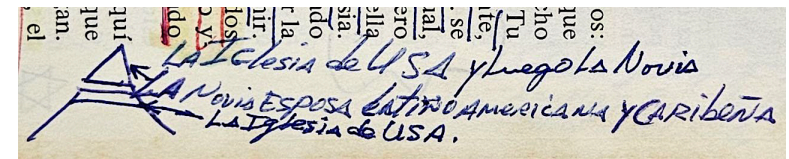 os:
que
cho
Tu
nte,
se
ual,
ero
ella
sia.
ndo
r la
nir.
dos
o y
ado
quí
que
an.
, el
LA IGlesia de USA y Luego LA Novia
LA Novia ESPOSA LATINOAMERICANA Y CARibEÑA
LA Iglesia de USA.